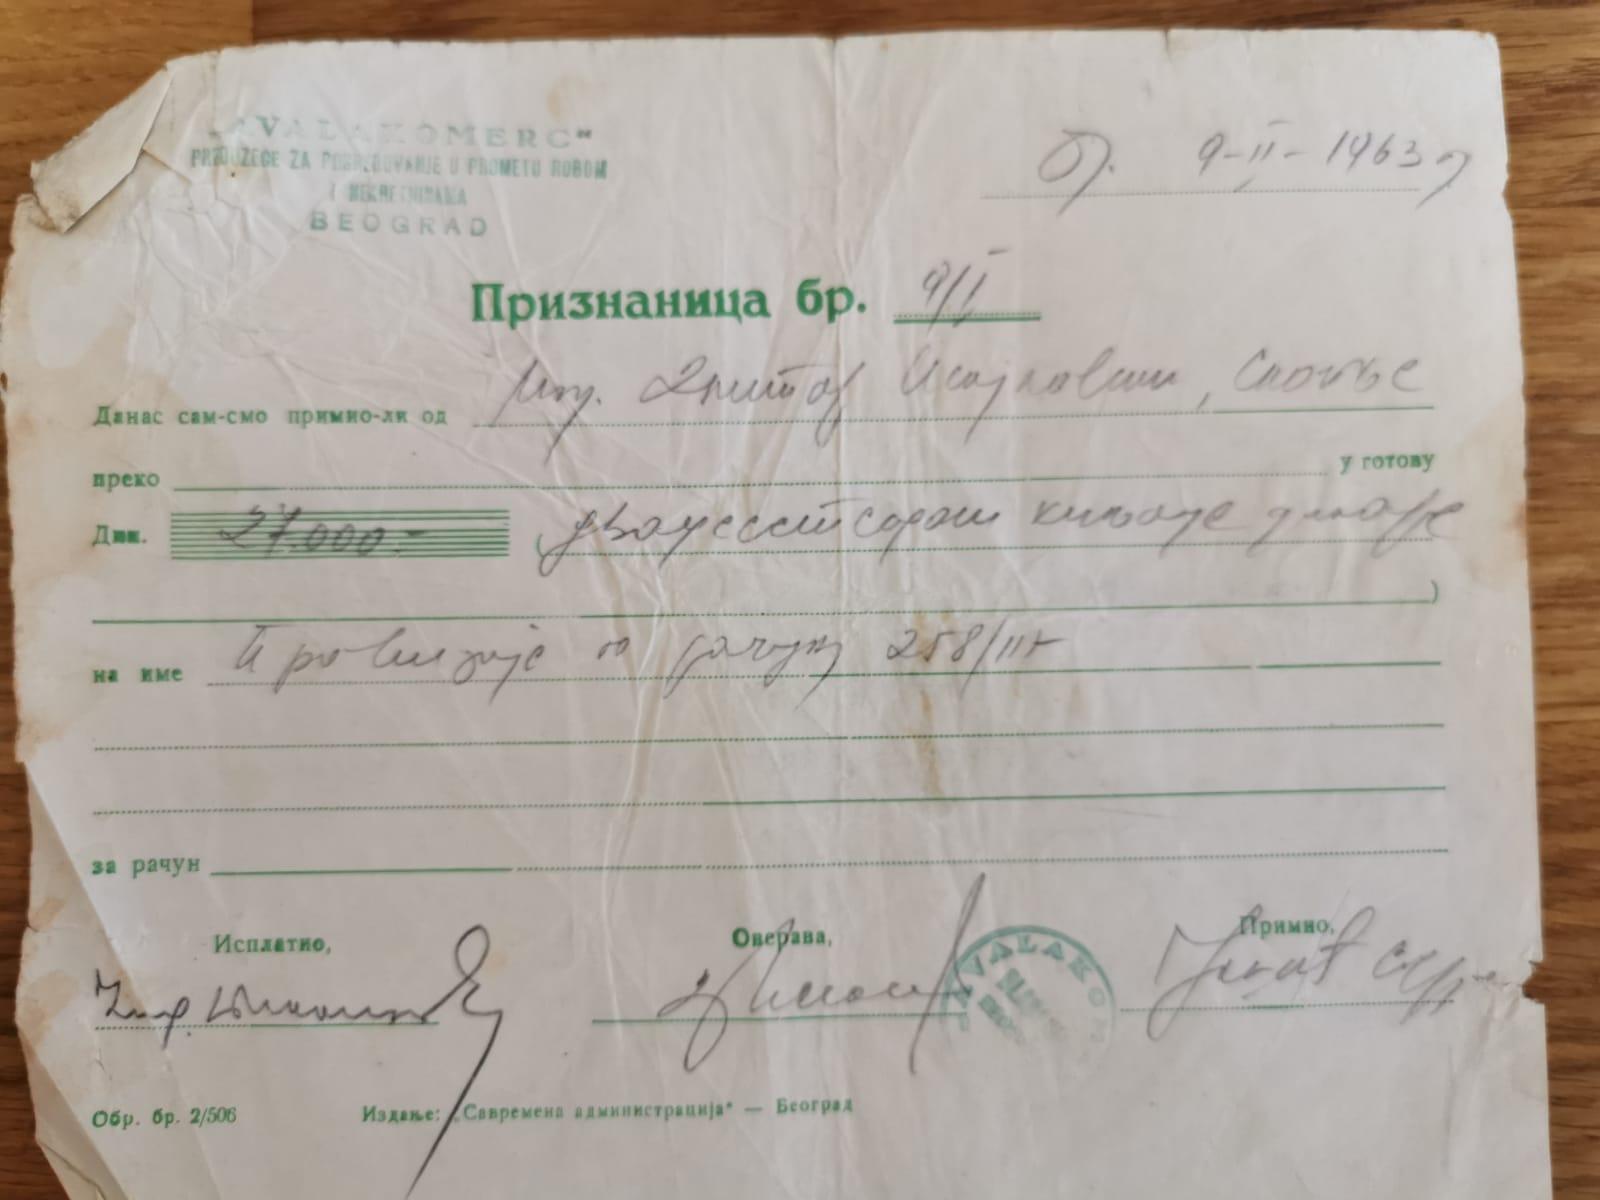 „AVALAKOMERC“
PREDUZEĆE ZA POSREDOVANJE U PROMETU ROBOM
I NEKRETNINAMA
BEOGRAD
9-II-1963
Признаница бр. 9/I
Данас сам-смо примио-ли од Инж. Исајловски, Скопље
преко у готову
Дин. 27.000.- (двадесетседам хиљаде динаре
)
на име Провизије по рачуну 258/III
за рачун
Исплатио, Оверава, Примио,
AVALAKOM
Обр. бр. 2/506 Издање: „Савремена администрација“ — Београд